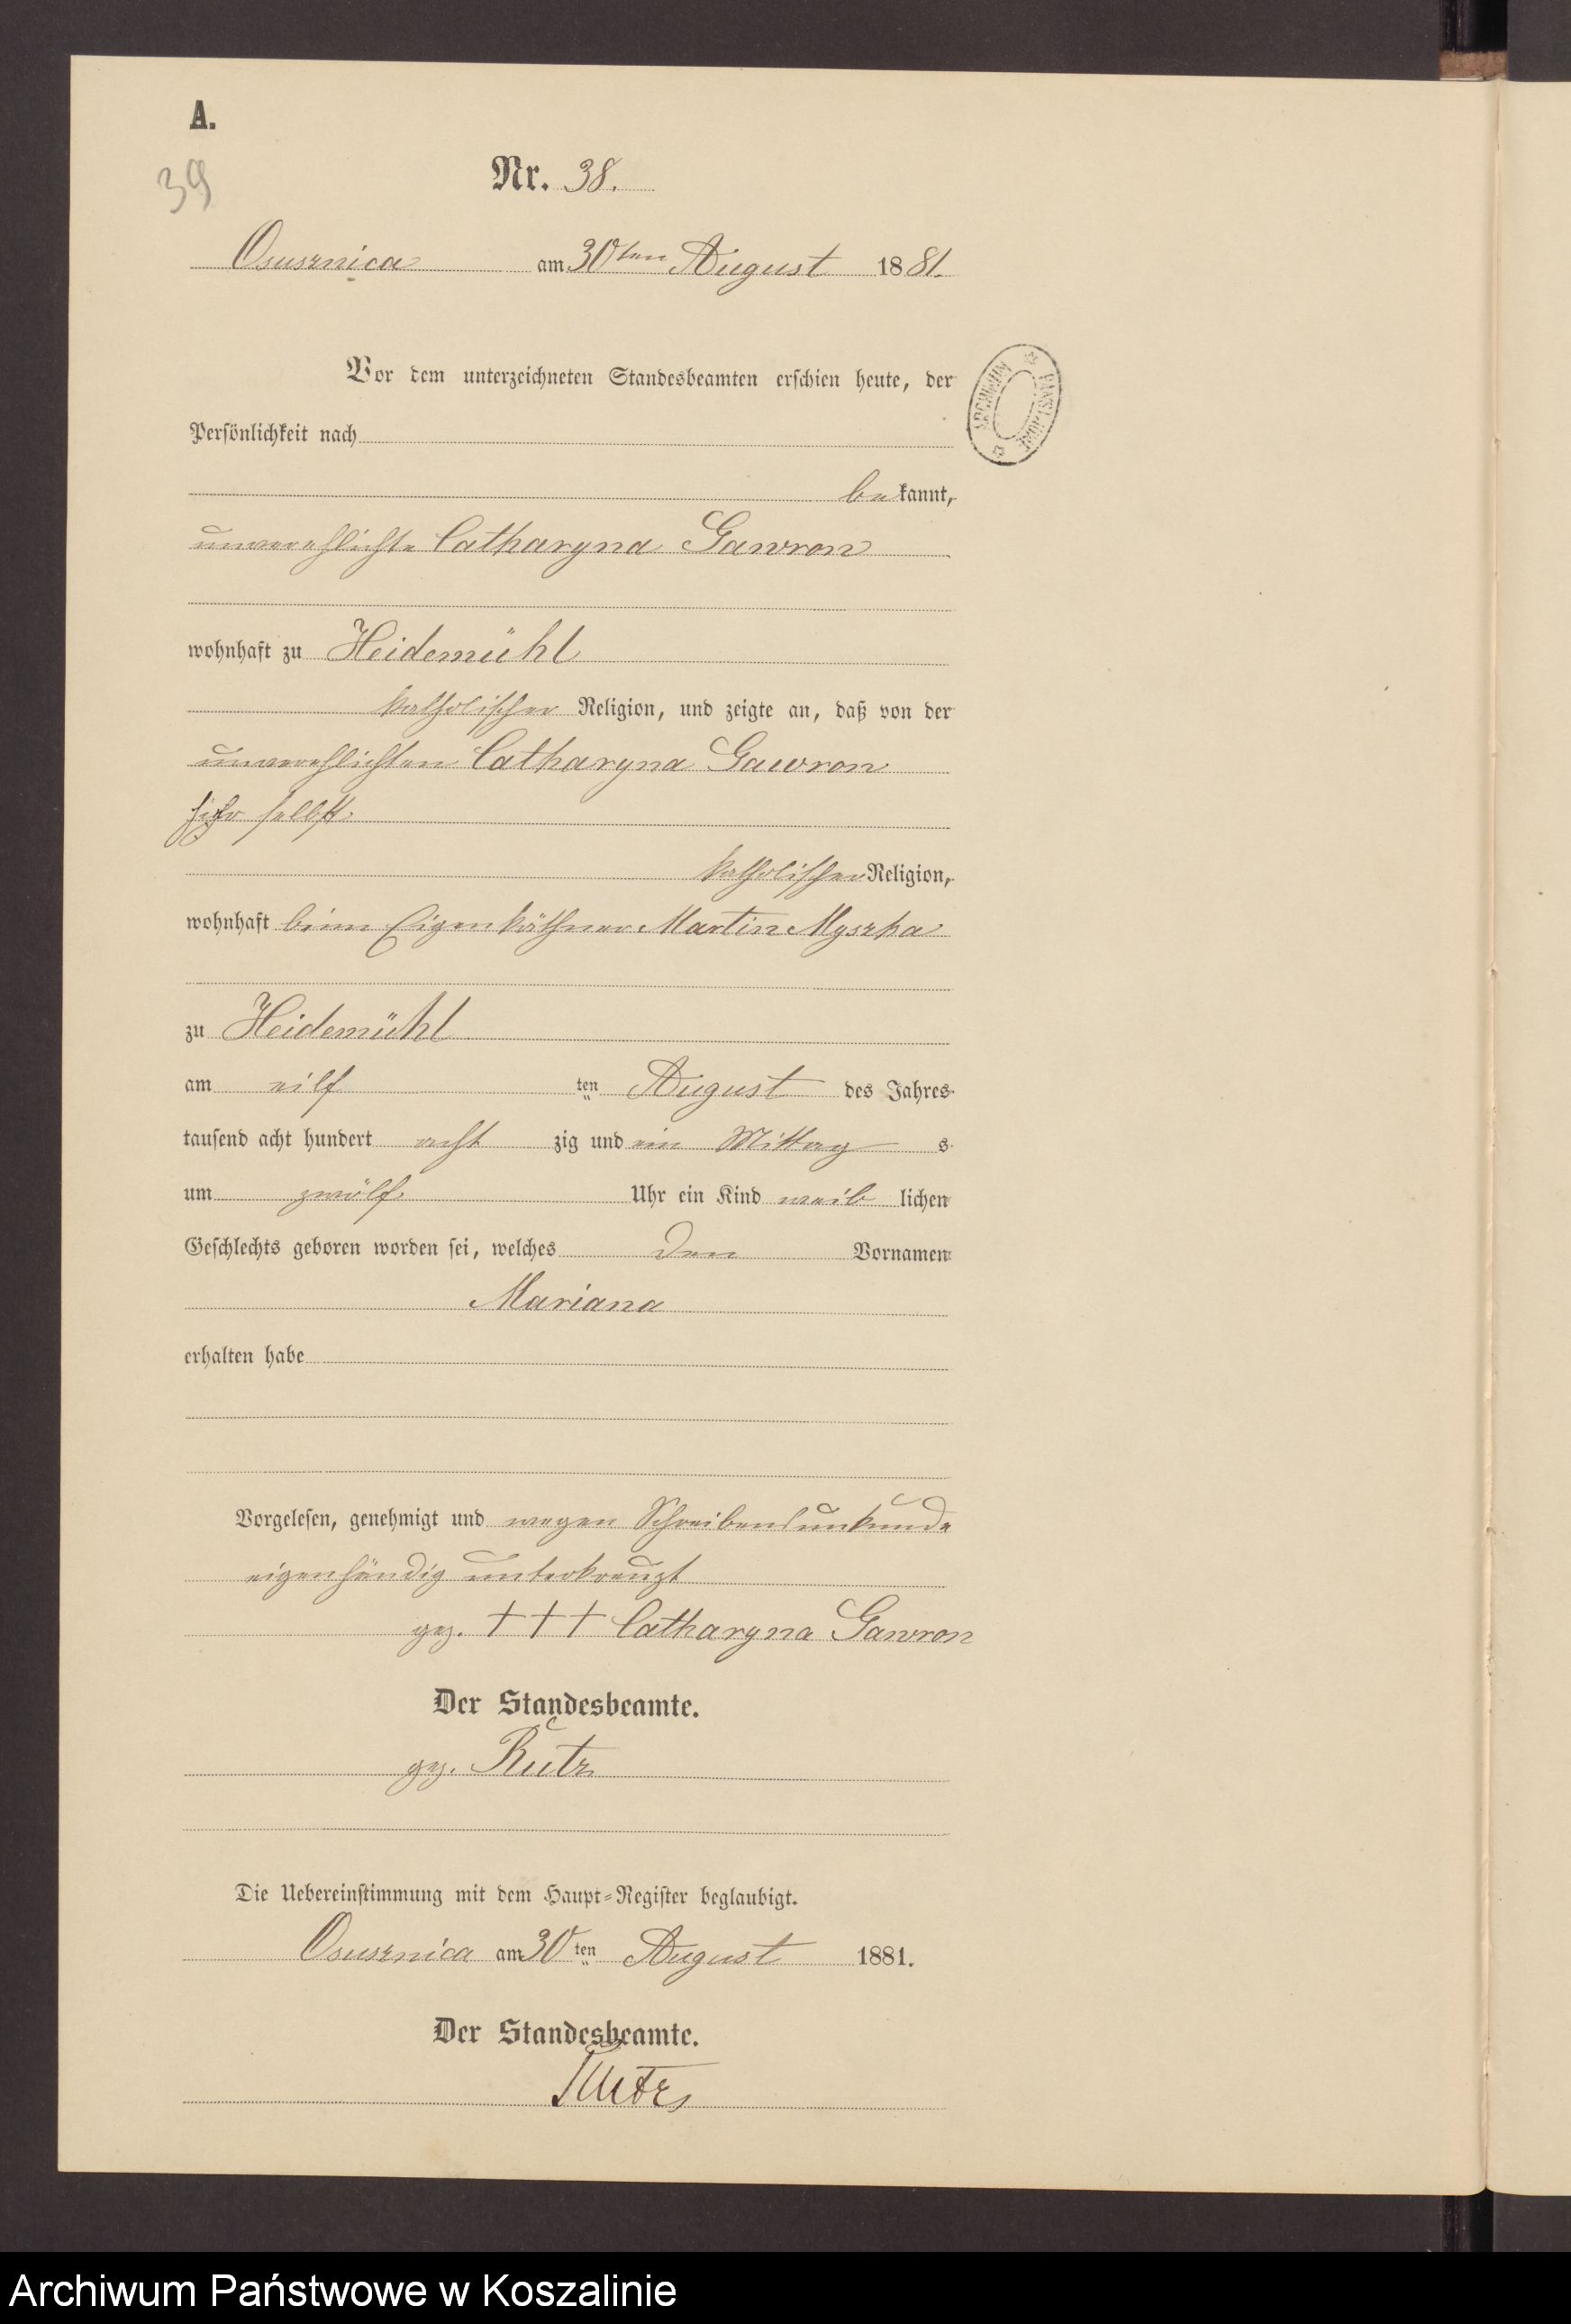 A.
39
Nr. 38.
Osusznica am 30ten August 1881.
Vor dem unterzeichneten Standesbeamten erschien heute, der
Persönlichkeit nach
bekannt,
unverehlichte Catharyna Gawron
wohnhaft zu Heidemühl
katholischer Religion, und zeigte an, daß von der
unverehlichten Catharyna Gawron
selbst
katholischer Religion,
wohnhaft beim Eigenkäthner Martin Myszka
zu Heidemühl
am eilf ten August des Jahres
tausend acht hundert acht zig und ein Mittag s
um zwölf Uhr ein Kind weib lichen
Geschlechts geboren worden sei, welches den Vornamen
Mariana
erhalten habe
Vorgelesen, genehmigt und wegen Schreibensunkunde
eigenhändig unterkreuzt
gez. +++ Catharyna Gawron
Der Standesbeamte.
gez. Rutz
Die Uebereinstimmung mit dem Haupt-Register beglaubigt.
Osusznica am 30 ten August 1881.
Der Standesbeamte.
Rutz
ARCHIWUM PAŃSTWOWE
Archiwum Państwowe w Koszalinie